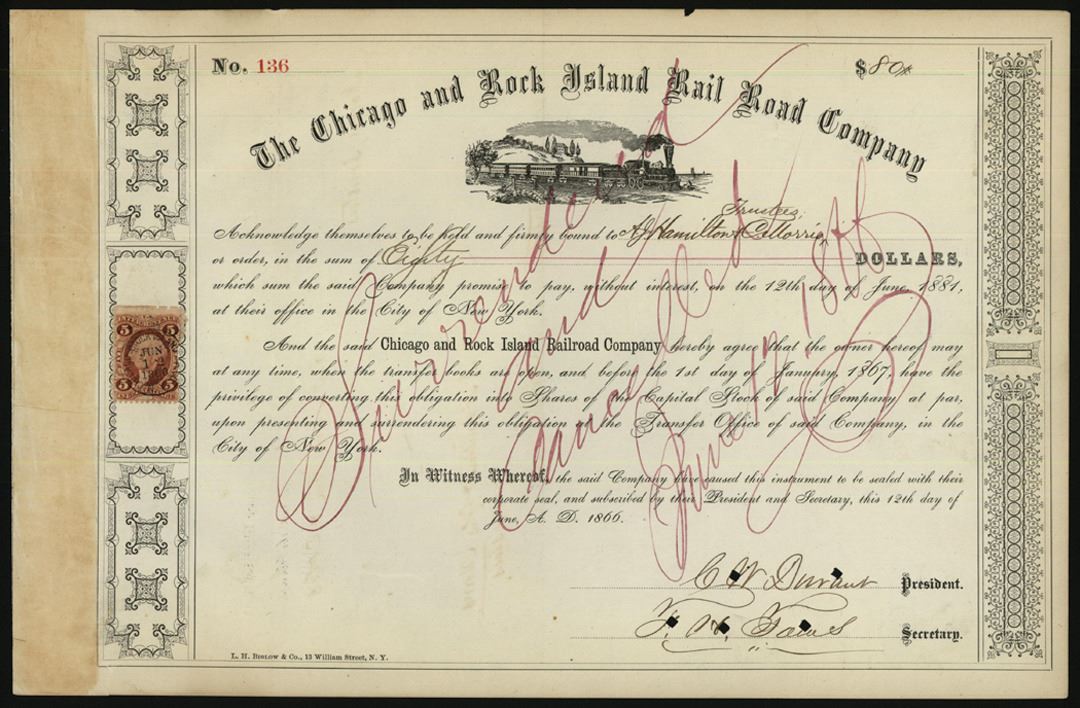 No. 136
$80
The Chicago and Rock Island Rail Road Company
Trustees,
Acknowledge themselves to be held and firmly bound to A J Hamilton & C Morris
or order, in the sum of Eighty DOLLARS,
which sum the said Company promise to pay, without interest, on the 12th day of June, 1881,
at their office in the City of New York.
And the said Chicago and Rock Island Railroad Company hereby agree that the owner hereof may
at any time, when the transfer books are open, and before the 1st day of January, 1867, have the
privilege of converting this obligation into Shares of the Capital Stock of said Company at par,
upon presenting and surrendering this obligation at the Transfer Office of said Company, in the
City of New York.
In Witness Whereof, the said Company have caused this instrument to be sealed with their
corporate seal, and subscribed by their President and Secretary, this 12th day of
June, A. D. 1866.
C W Durant President.
F. H. Tows Secretary.
L. H. Biglow & Co., 13 William Street, N. Y.
Surrendered
and
Cancelled
June 12 1866
5 5
JUN
5 5